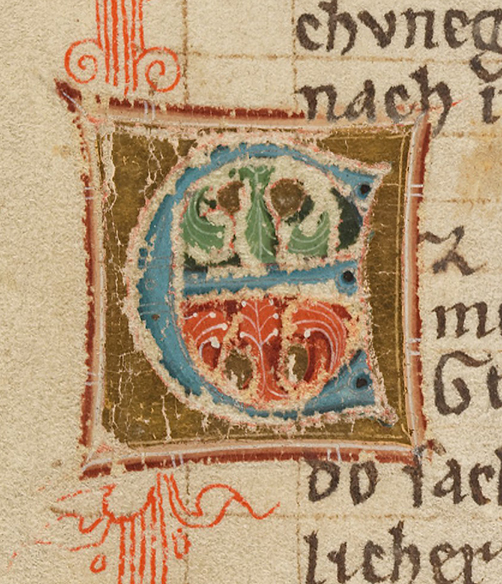 chvneg
nach i
E z
m
Ge
do sach
licher